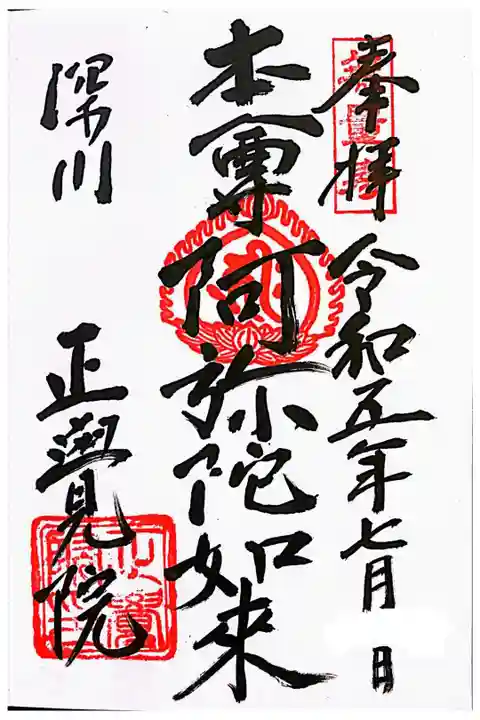 奉拝 令和五年七月 日
本尊阿弥陀如来
深川 正覺院